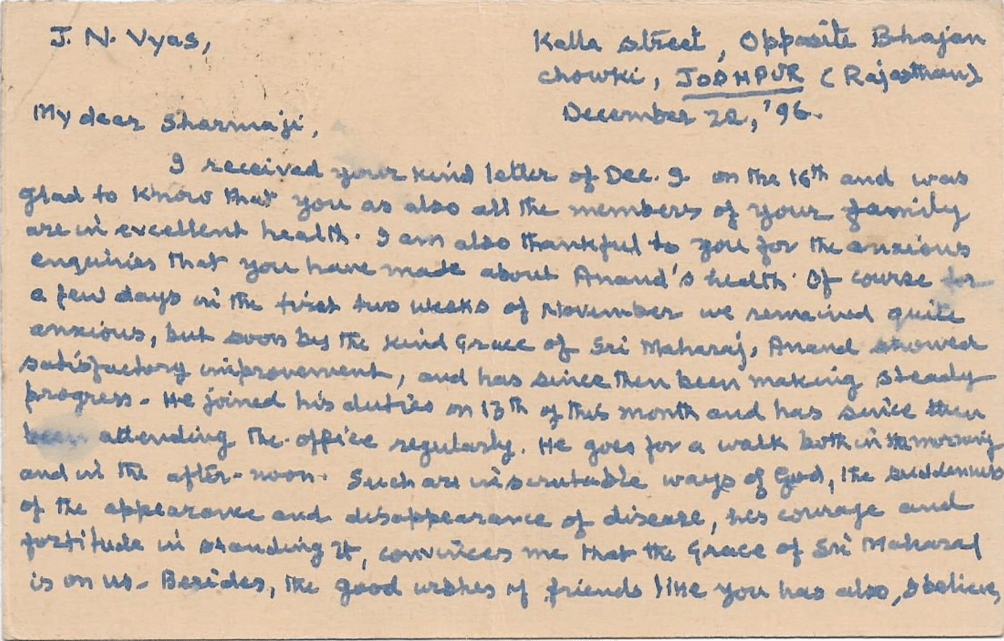 J. N. Vyas,
Kalla street, Opposite Bhajan
chowki, JODHPUR (Rajasthan)
December 22, '96.
My dear Sharmaji,
I received your kind letter of Dec. 9 on the 16th and was
glad to know that you as also all the members of your family
are in excellent health. I am also thankful to you for the anxious
enquiries that you have made about Anand's health. Of course for
a few days in the first two weeks of November we remained quite
anxious, but soon by the kind Grace of Sri Maharaj, Anand showed
satisfactory improvement, and has since then been making steady
progress. He joined his duties on 13th of this month and has since then
been attending the office regularly. He goes for a walk both in the morning
and in the after-noon. Such are inscrutable ways of God, the suddenness
of the appearance and disappearance of disease, his courage and
fortitude in standing it, convinces me that the Grace of Sri Maharaj
is on us. Besides, the good wishes of friends like you has also, I believe,